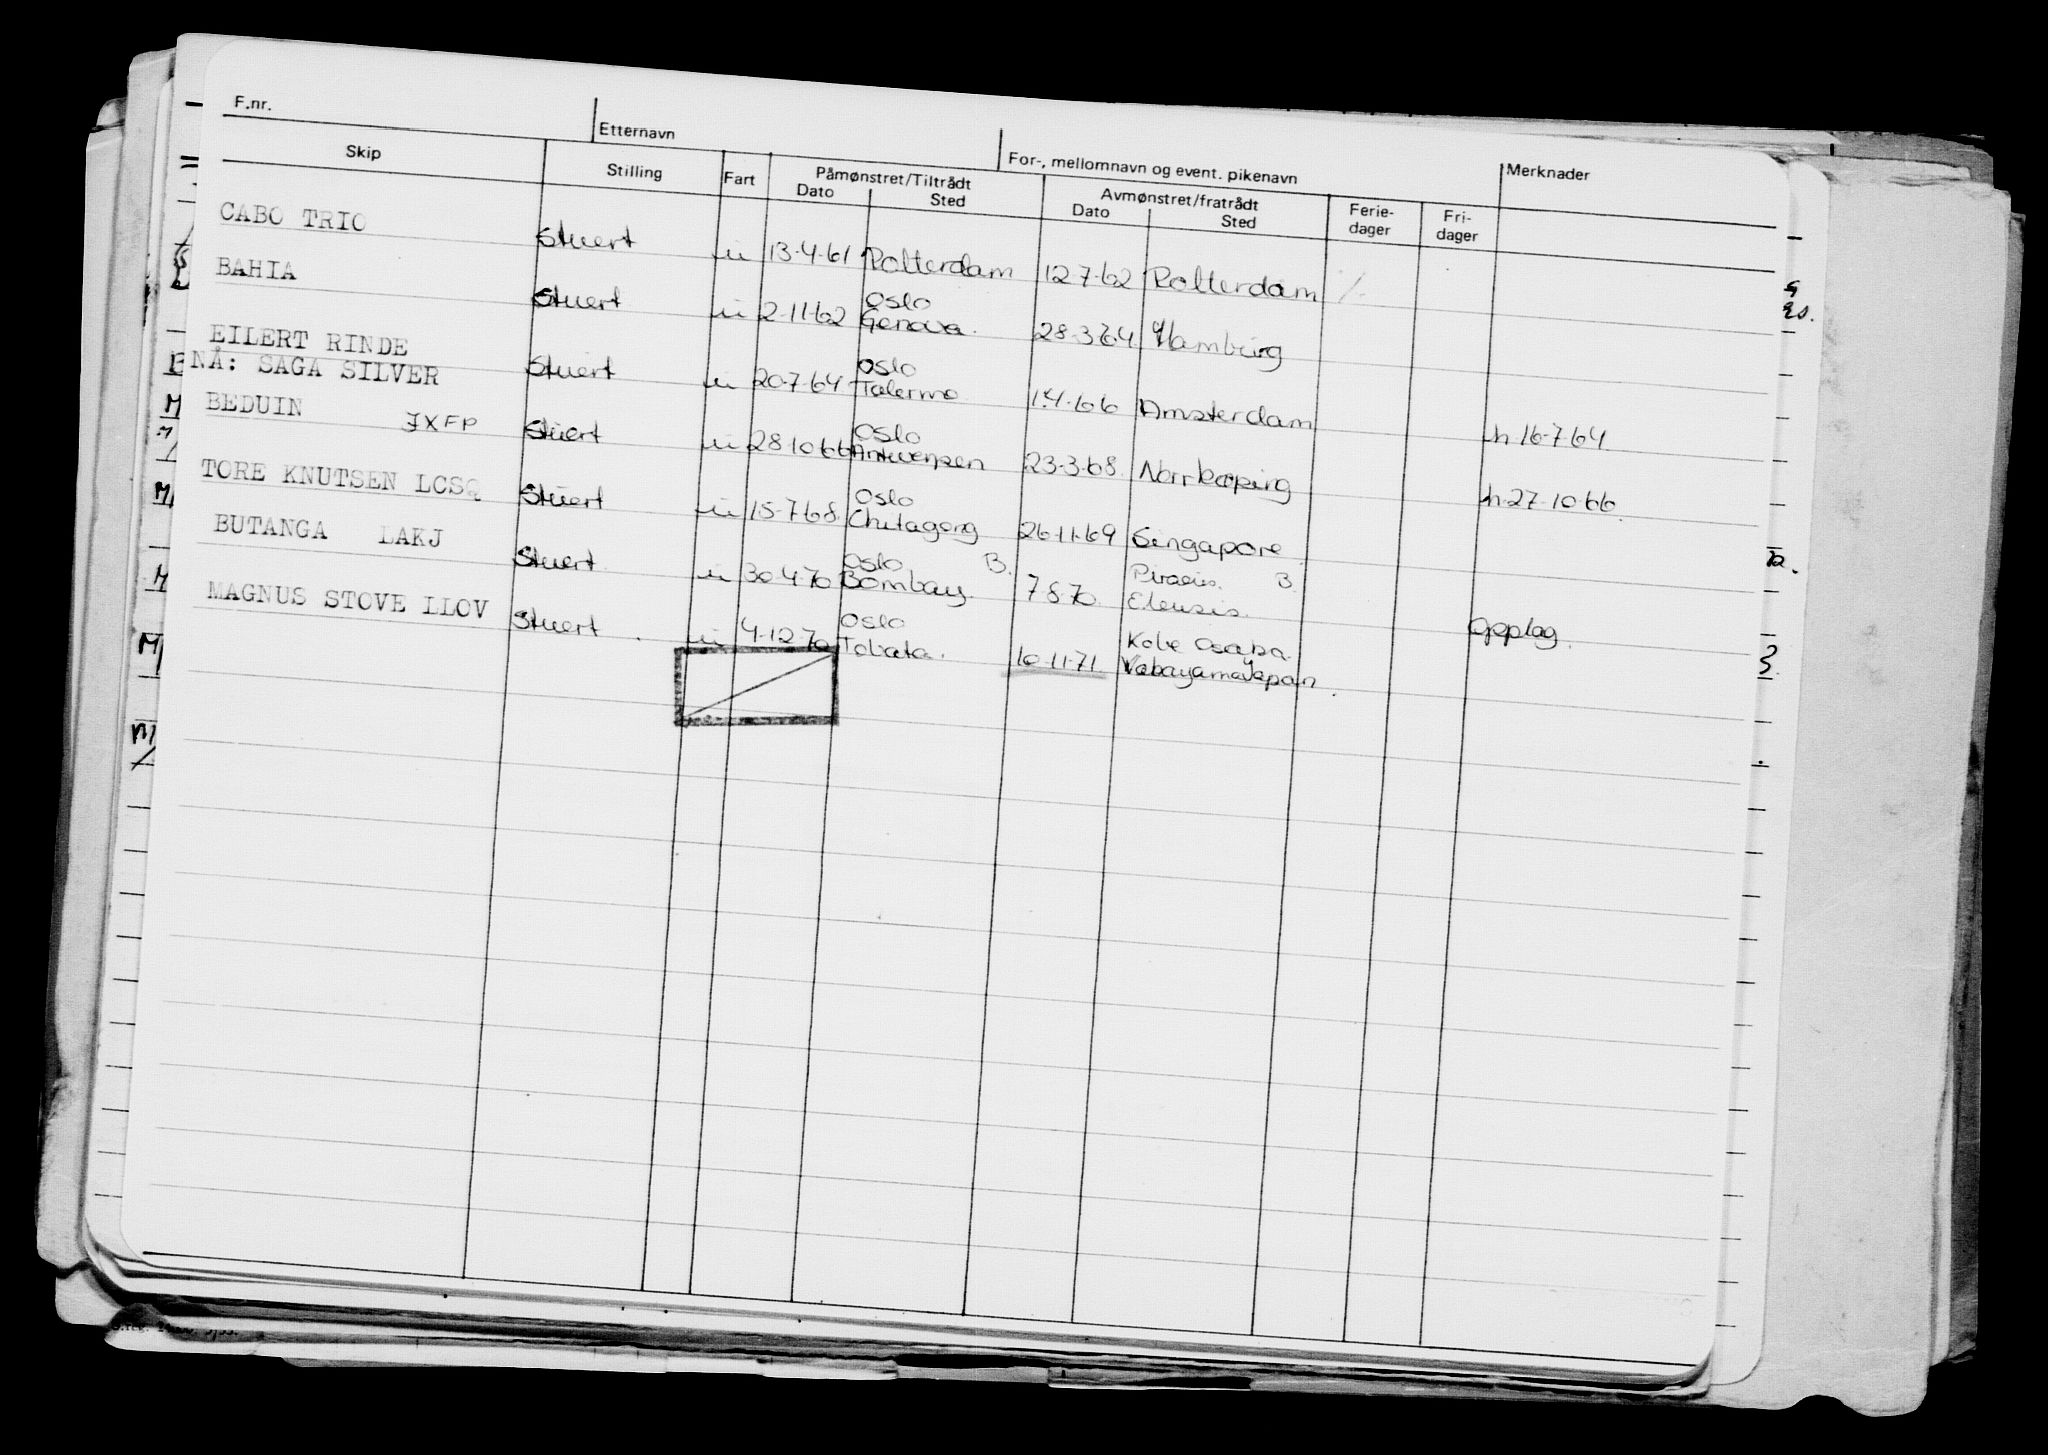 F.nr.
Etternavn
For-, mellomnavn og event. pikenavn
Merknader
Skip
Stilling
Fart
Påmønstret/Tiltrådt
Dato
Sted
Avmønstret/fratrådt
Dato
Sted
Ferie-
dager
Fri-
dager
CABO TRIO Stuert u 13-4-61 Rotterdam 12-7-62 Rotterdam
BAHIA Stuert u 2-11-62 Oslo
Genova. 28-3-64 Hamburg
EILERT RINDE
NÅ: SAGA SILVER Stuert u 20-7-64 Oslo
Amsterdam h 16-7-64
BEDUIN JXFP Stuert u 28-10-66 Oslo
Antwerpen 23-3-68. Norrkøping h-27-10-66.
TORE KNUTSEN LCSQ Stuert u 15-7-68. Oslo
Chitagong 26-11-69 Singapore
BUTANGA LAKJ Stuert u 30-4-70 Oslo B.
Bombay. 7 8 70. Piraeus. B.
Eleusis. Opplag.
MAGNUS STOVE LLOV Stuert. u 4-12-70 Oslo
Tobata. 10-11-71 Kobe Osaka.